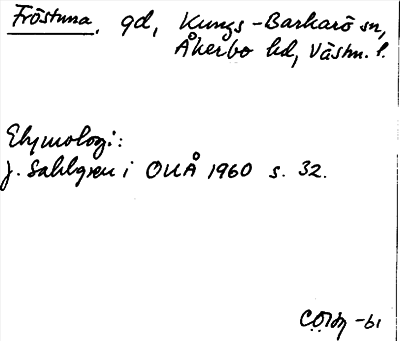 Fröstuna, gd, Kungs-Barkarö sn,
Åkerbo hd, Västm. l.
Etymologi:
J. Sahlgren i OUÅ 1960 s. 32.
-61